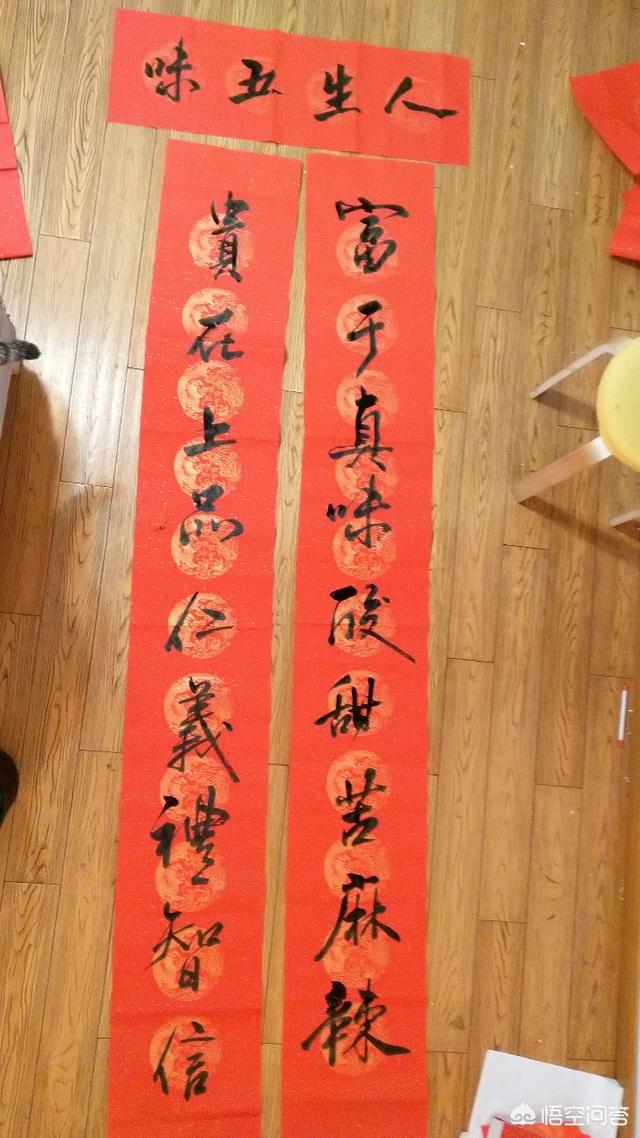 人生五味
富于真味酸甜苦麻辣
貴在上品仁義禮智信
悟空问答